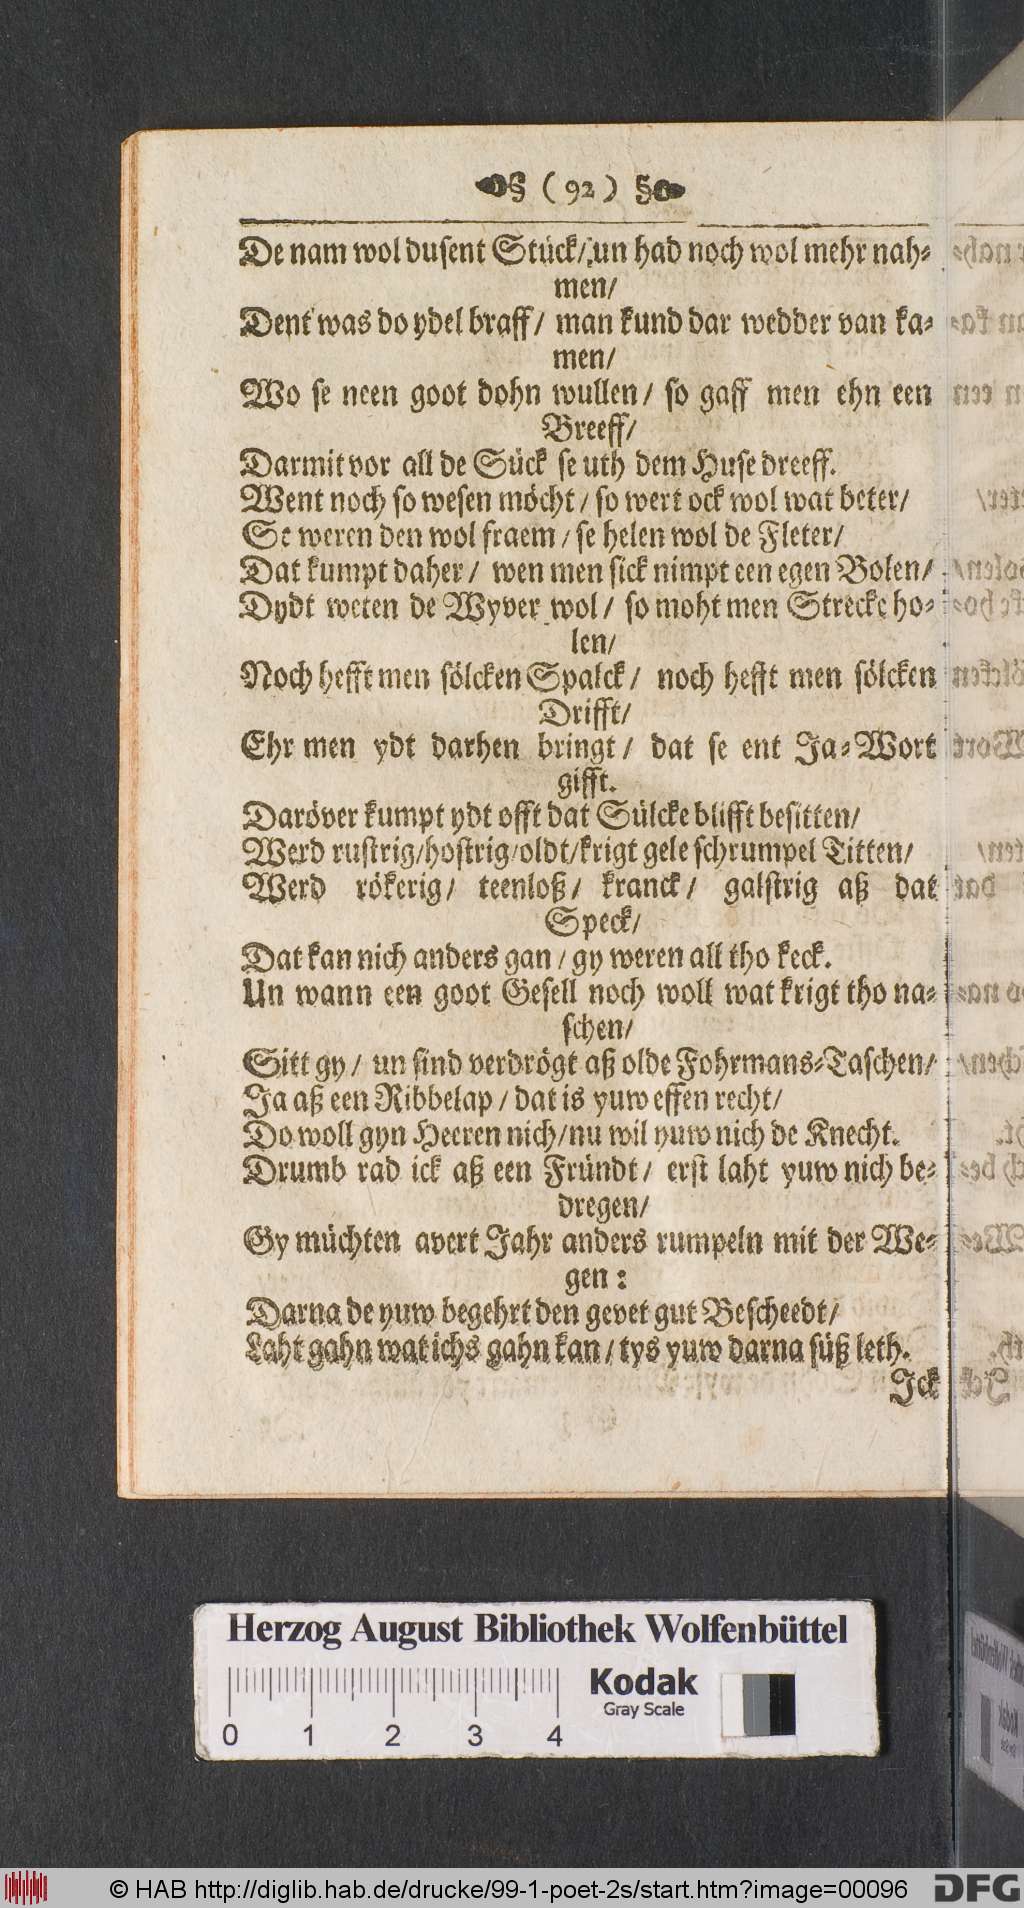 ( 92 )
De nam wol dusent Stück/ un had noch wol mehr nah-
men/
Dent was do ydel braff/ man kund dar wedder van ka-
men/
Wo se neen goot dohn wullen/ so gaff men ehn een
Breeff/
Darmit vor all de Sück se uth dem Huse dreeff.
Went noch so wesen möcht/ so wert ock wol wat beter/
Se weren den wol fraem/ se helen wol de Fleter/
Dat kumpt daher/ wen men sick nimpt een egen Bolen/
Dydt weten de Wyver wol/ so moht men Strecke ho-
len/
Noch hefft men sölcken Spalck/ noch hefft men sölcken
Drifft/
Ehr men ydt darhen bringt/ dat se ent Ja-Wort
gifft.
Daröver kumpt ydt offt dat Sülcke blifft besitten/
Werd rustrig/hostrig/oldt/krigt gele schrumpel Titten/
Werd rökerig/ teenloß/ kranck/ galstrig aß dat
Speck/
Dat kan nich anders gan/ gy weren all tho keck.
Un wann een goot Gesell noch woll wat krigt tho na-
schen/
Sitt gy/ un sind verdrögt aß olde Fohrmans-Taschen/
Ja aß een Ribbelap/ dat is yuw effen recht/
Do woll gyn Heeren nich/nu wil yuw nich de Knecht.
Drumb rad ick aß een Fründt/ erst laht yuw nich be-
dregen/
Gy müchten avert Jahr anders rumpeln mit der We-
gen:
Darna de yuw begehrt den gevet gut Bescheedt/
Laht gahn wat ichs gahn kan/ tys yuw darna süß leth.
Ick
Herzog August Bibliothek Wolfenbüttel
Kodak
Gray Scale
0 1 2 3 4
© HAB http://diglib.hab.de/drucke/99-1-poet-2s/start.htm?image=00096
DFG